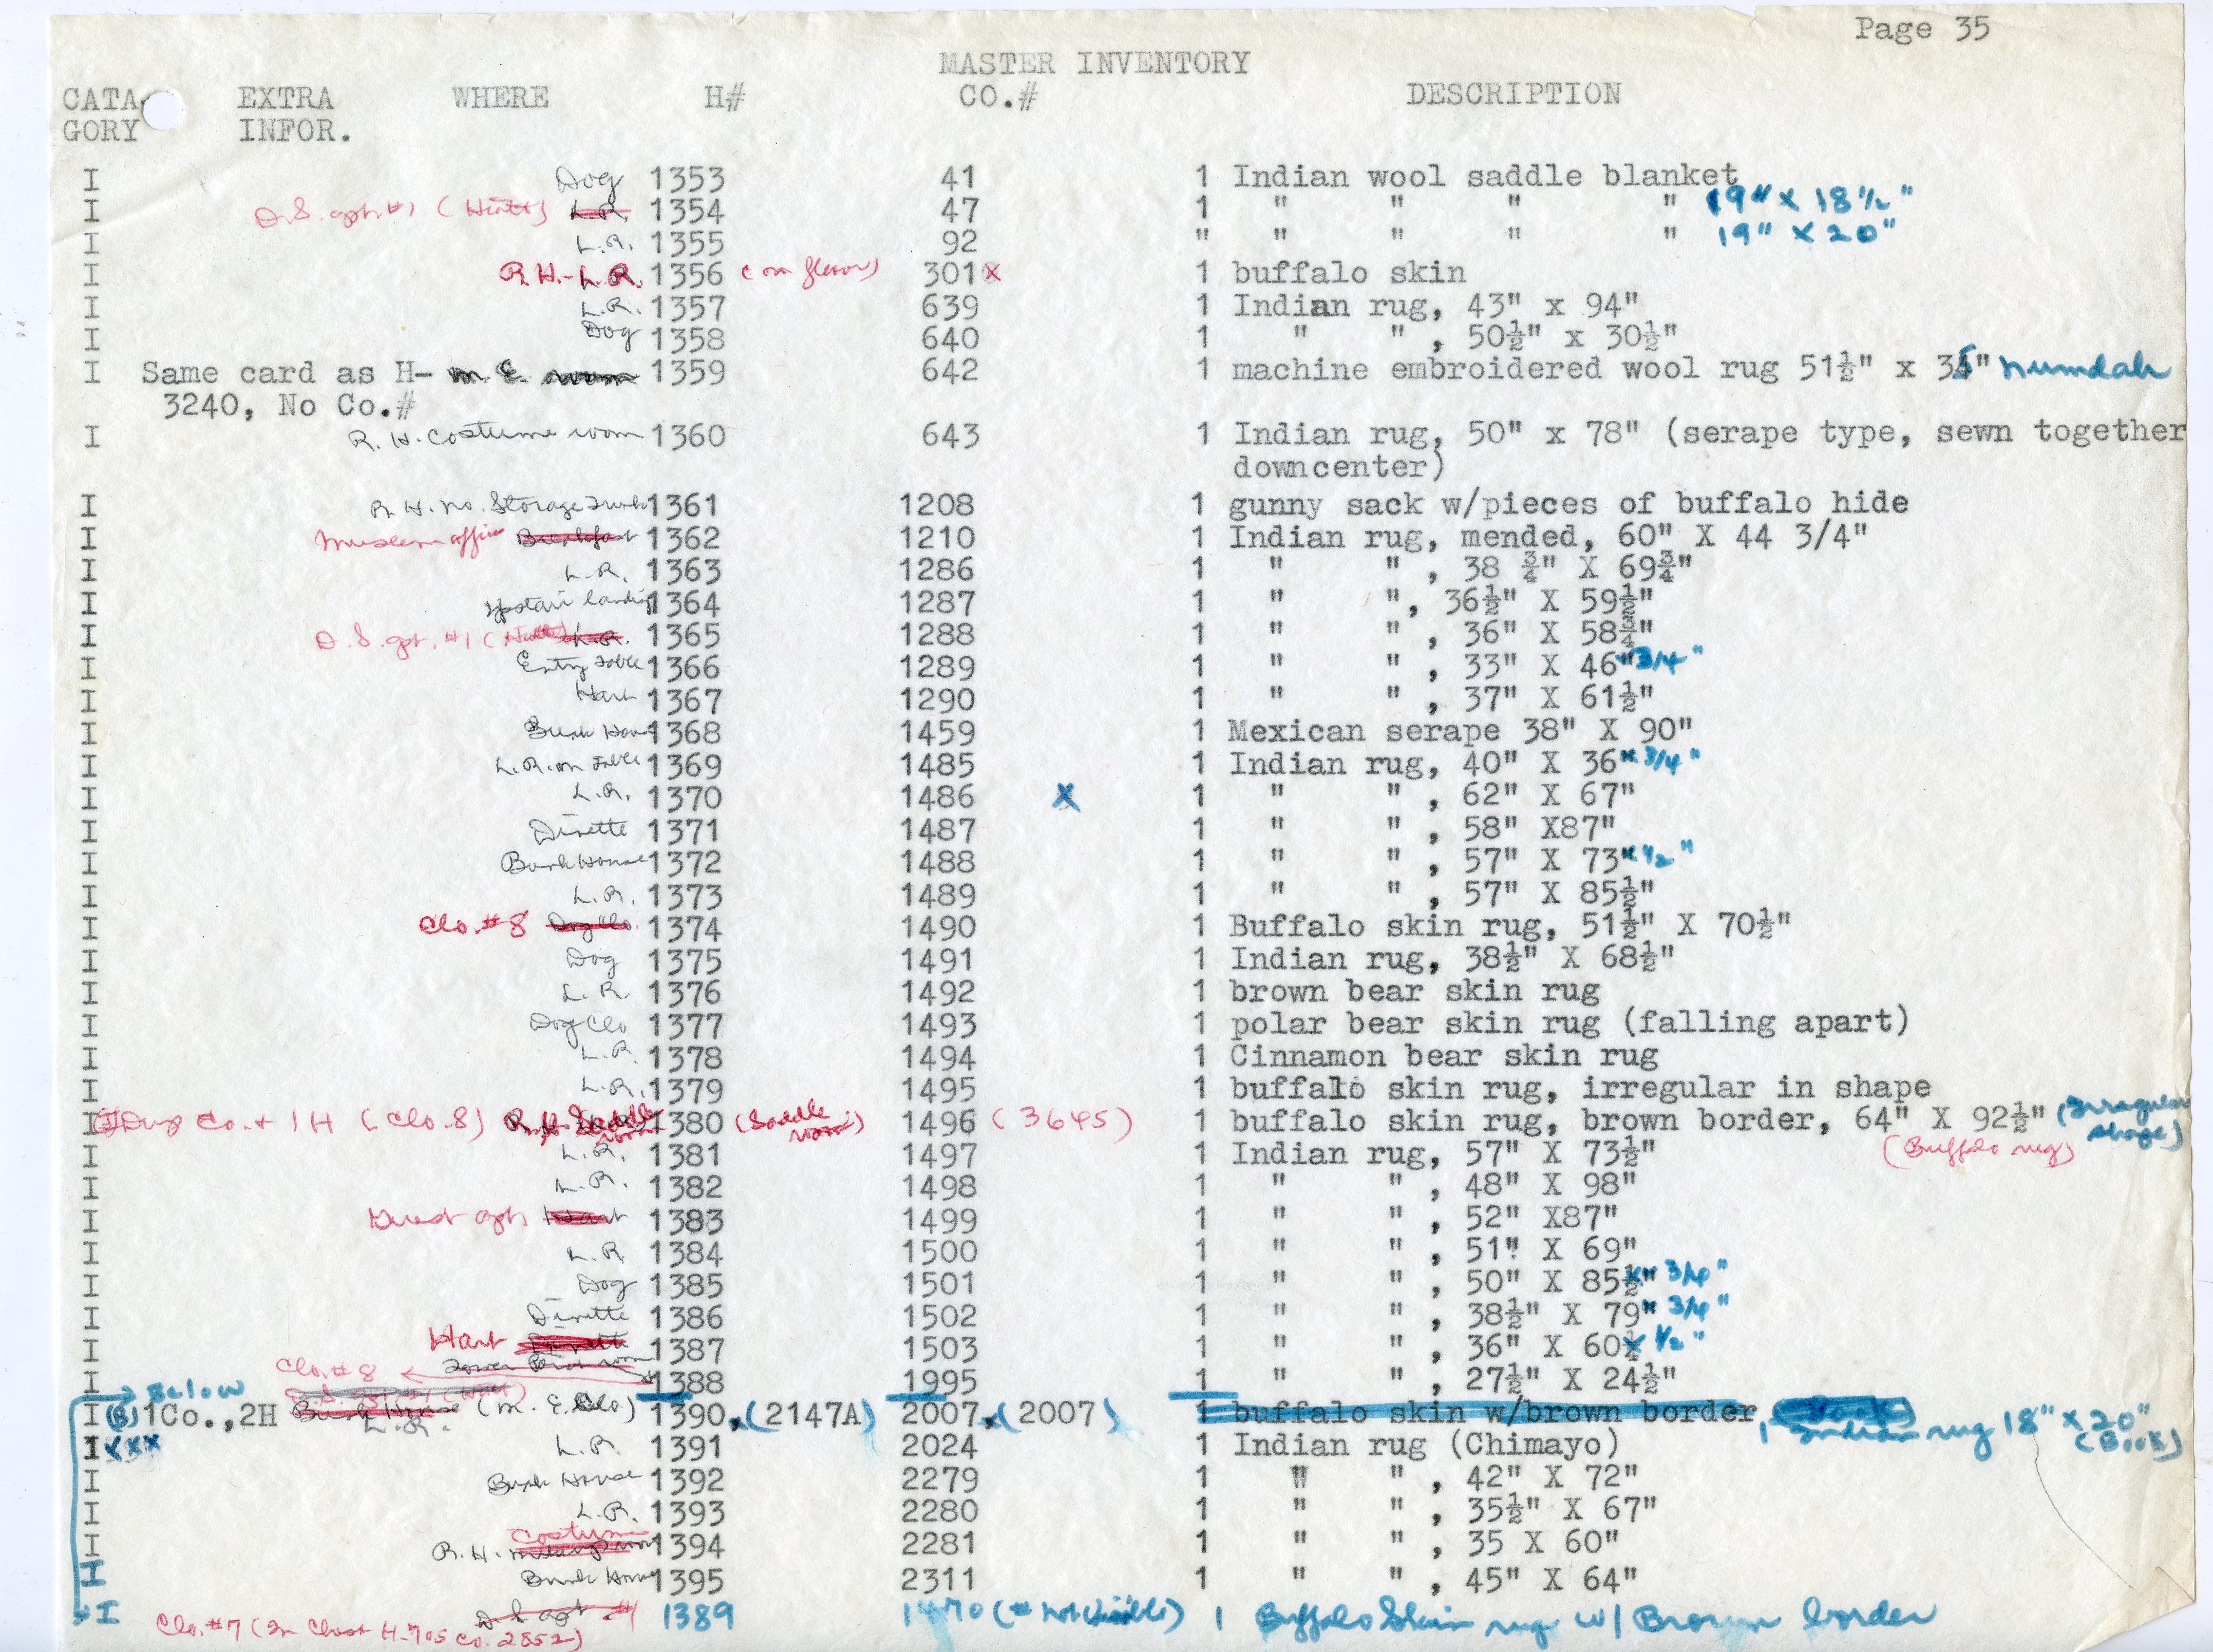 Page 35
MASTER INVENTORY
CATA- EXTRA WHERE H# CO.# DESCRIPTION
GORY INFOR.
I Dog 1353 41 1 Indian wool saddle blanket
I D.S. apt. #1 (Hart) L.R. 1354 47 1 " " " " 19" x 18 1/2"
I L.R. 1355 92 " " " " " 19" x 20"
I R.H.-L.R. 1356 (on floor) 301 x 1 buffalo skin
I L.R. 1357 639 1 Indian rug, 43" x 94"
I Dog 1358 640 1 " " , 50½" x 30½"
I Same card as H- m. E. room 1359 642 1 machine embroidered wool rug 51½" x 35" numdah
3240, No Co.#
I R.H. costume room 1360 643 1 Indian rug, 50" x 78" (serape type, sewn together
downcenter)
I R.H. no. Storage 1361 1208 1 gunny sack w/pieces of buffalo hide
I Museum office Breakfast 1362 1210 1 Indian rug, mended, 60" X 44 3/4"
I L.R. 1363 1286 1 " " , 38 ¾" X 69¾"
I Upstair landing 1364 1287 1 " ", 36½" X 59½"
I D.S. apt. #1 L.R. 1365 1288 1 " " , 36" X 58¾"
I Entry table 1366 1289 1 " " , 33" X 46" 3/4"
I Hart 1367 1290 1 " " , 37" X 61½"
I Bunk House 1368 1459 1 Mexican serape 38" X 90"
I L.R. on table 1369 1485 1 Indian rug, 40" X 36" 3/4"
I L.R. 1370 1486 X 1 " " , 62" X 67"
I Dinette 1371 1487 1 " " , 58" X87"
I Bunk House 1372 1488 1 " " , 57" X 73" 1/2"
I L.R. 1373 1489 1 " " , 57" X 85½"
I Clo. #8 Dog Clo. 1374 1490 1 Buffalo skin rug, 51½" X 70½"
I Dog 1375 1491 1 Indian rug, 38½" X 68½"
I L.R. 1376 1492 1 brown bear skin rug
I Dog Clo 1377 1493 1 polar bear skin rug (falling apart)
I L.R. 1378 1494 1 Cinnamon bear skin rug
I L.R. 1379 1495 1 buffalo skin rug, irregular in shape
I Dup Co. + 1H (Clo. 8) R.H. Saddle room 1380 (Saddle room) 1496 (3645) 1 buffalo skin rug, brown border, 64" X 92½" (Irregular shape)
I L.R. 1381 1497 1 Indian rug, 57" X 73½" (Buffalo rug)
I L.R. 1382 1498 1 " " , 48" X 98"
I apt Hart 1383 1499 1 " " , 52" X87"
I L.R 1384 1500 1 " " , 51" X 69"
I Dog 1385 1501 1 " " , 50" X 85½" 3/4"
I Dinette 1386 1502 1 " " , 38½" X 79" 3/4"
I Hart Dinette 1387 1503 1 " " , 36" X 60¼ 1/2"
Clo. #8 Tower room
I 1388 1995 1 " " , 27½" X 24½"
Below D.S. apt #1 (Hart)
I (B) 1Co.,2H Bunk House (M. E. Clo) 1390, (2147A) 2007, (2007) 1 buffalo skin w/brown border 1 Indian rug 18" x 20"
L.R. (Book)
I xxx L.R. 1391 2024 1 Indian rug (Chimayo)
I Bunk House 1392 2279 1 " " , 42" X 72"
I L.R. 1393 2280 1 " " , 35½" X 67"
I R.H. costume 1394 2281 1 " " , 35 X 60"
I Bunk House 1395 2311 1 " " , 45" X 64"
I D.S. apt #1 1389 1470 (# not visible) 1 Buffalo Skin rug w/ Brown border
Clo. #7 (In Chest H-705 Co. 2852)